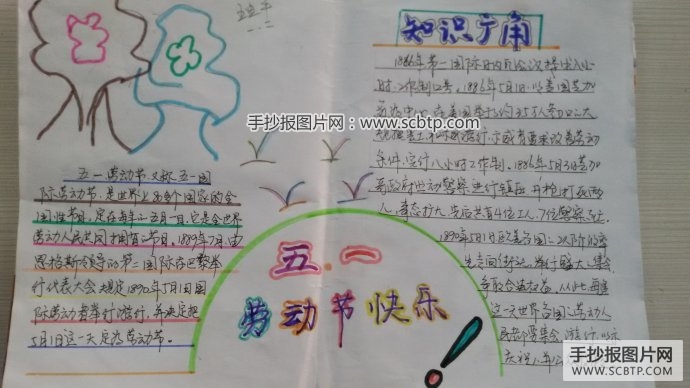 知识广角
手抄报图片网:www.scbtp.com
五一劳动节又称五一国
际劳动节,是世界上多个国家的全
国性节日,定在每年的五月一日,它是全世界
劳动人民共同拥有的节日,1889年7月,由
恩格斯领导的第二国际在巴黎举
行代表大会规定1890年5月1日国
际劳动者举行游行,并决定把
5月1日这一天定为劳动节。
1866年第一国际日内瓦会议提出八小
时工作制口号,1886年5月1日,以美国芝加
哥为中心,在美国举
条件,实行八小时工作制,1886年5月3日芝加
哥政府出动警察进行镇压,开枪打死两
人,事态扩大,先后共有4位工人,7位警察
1890年5月1日欧美各国
先走向街头,举行盛大
争取合法权益,从此,每逢
这一天世界各国的劳动人
民都要集会,游行,以示
庆祝
五.一
劳动节快乐
手抄报图片网
SCBTP.COM